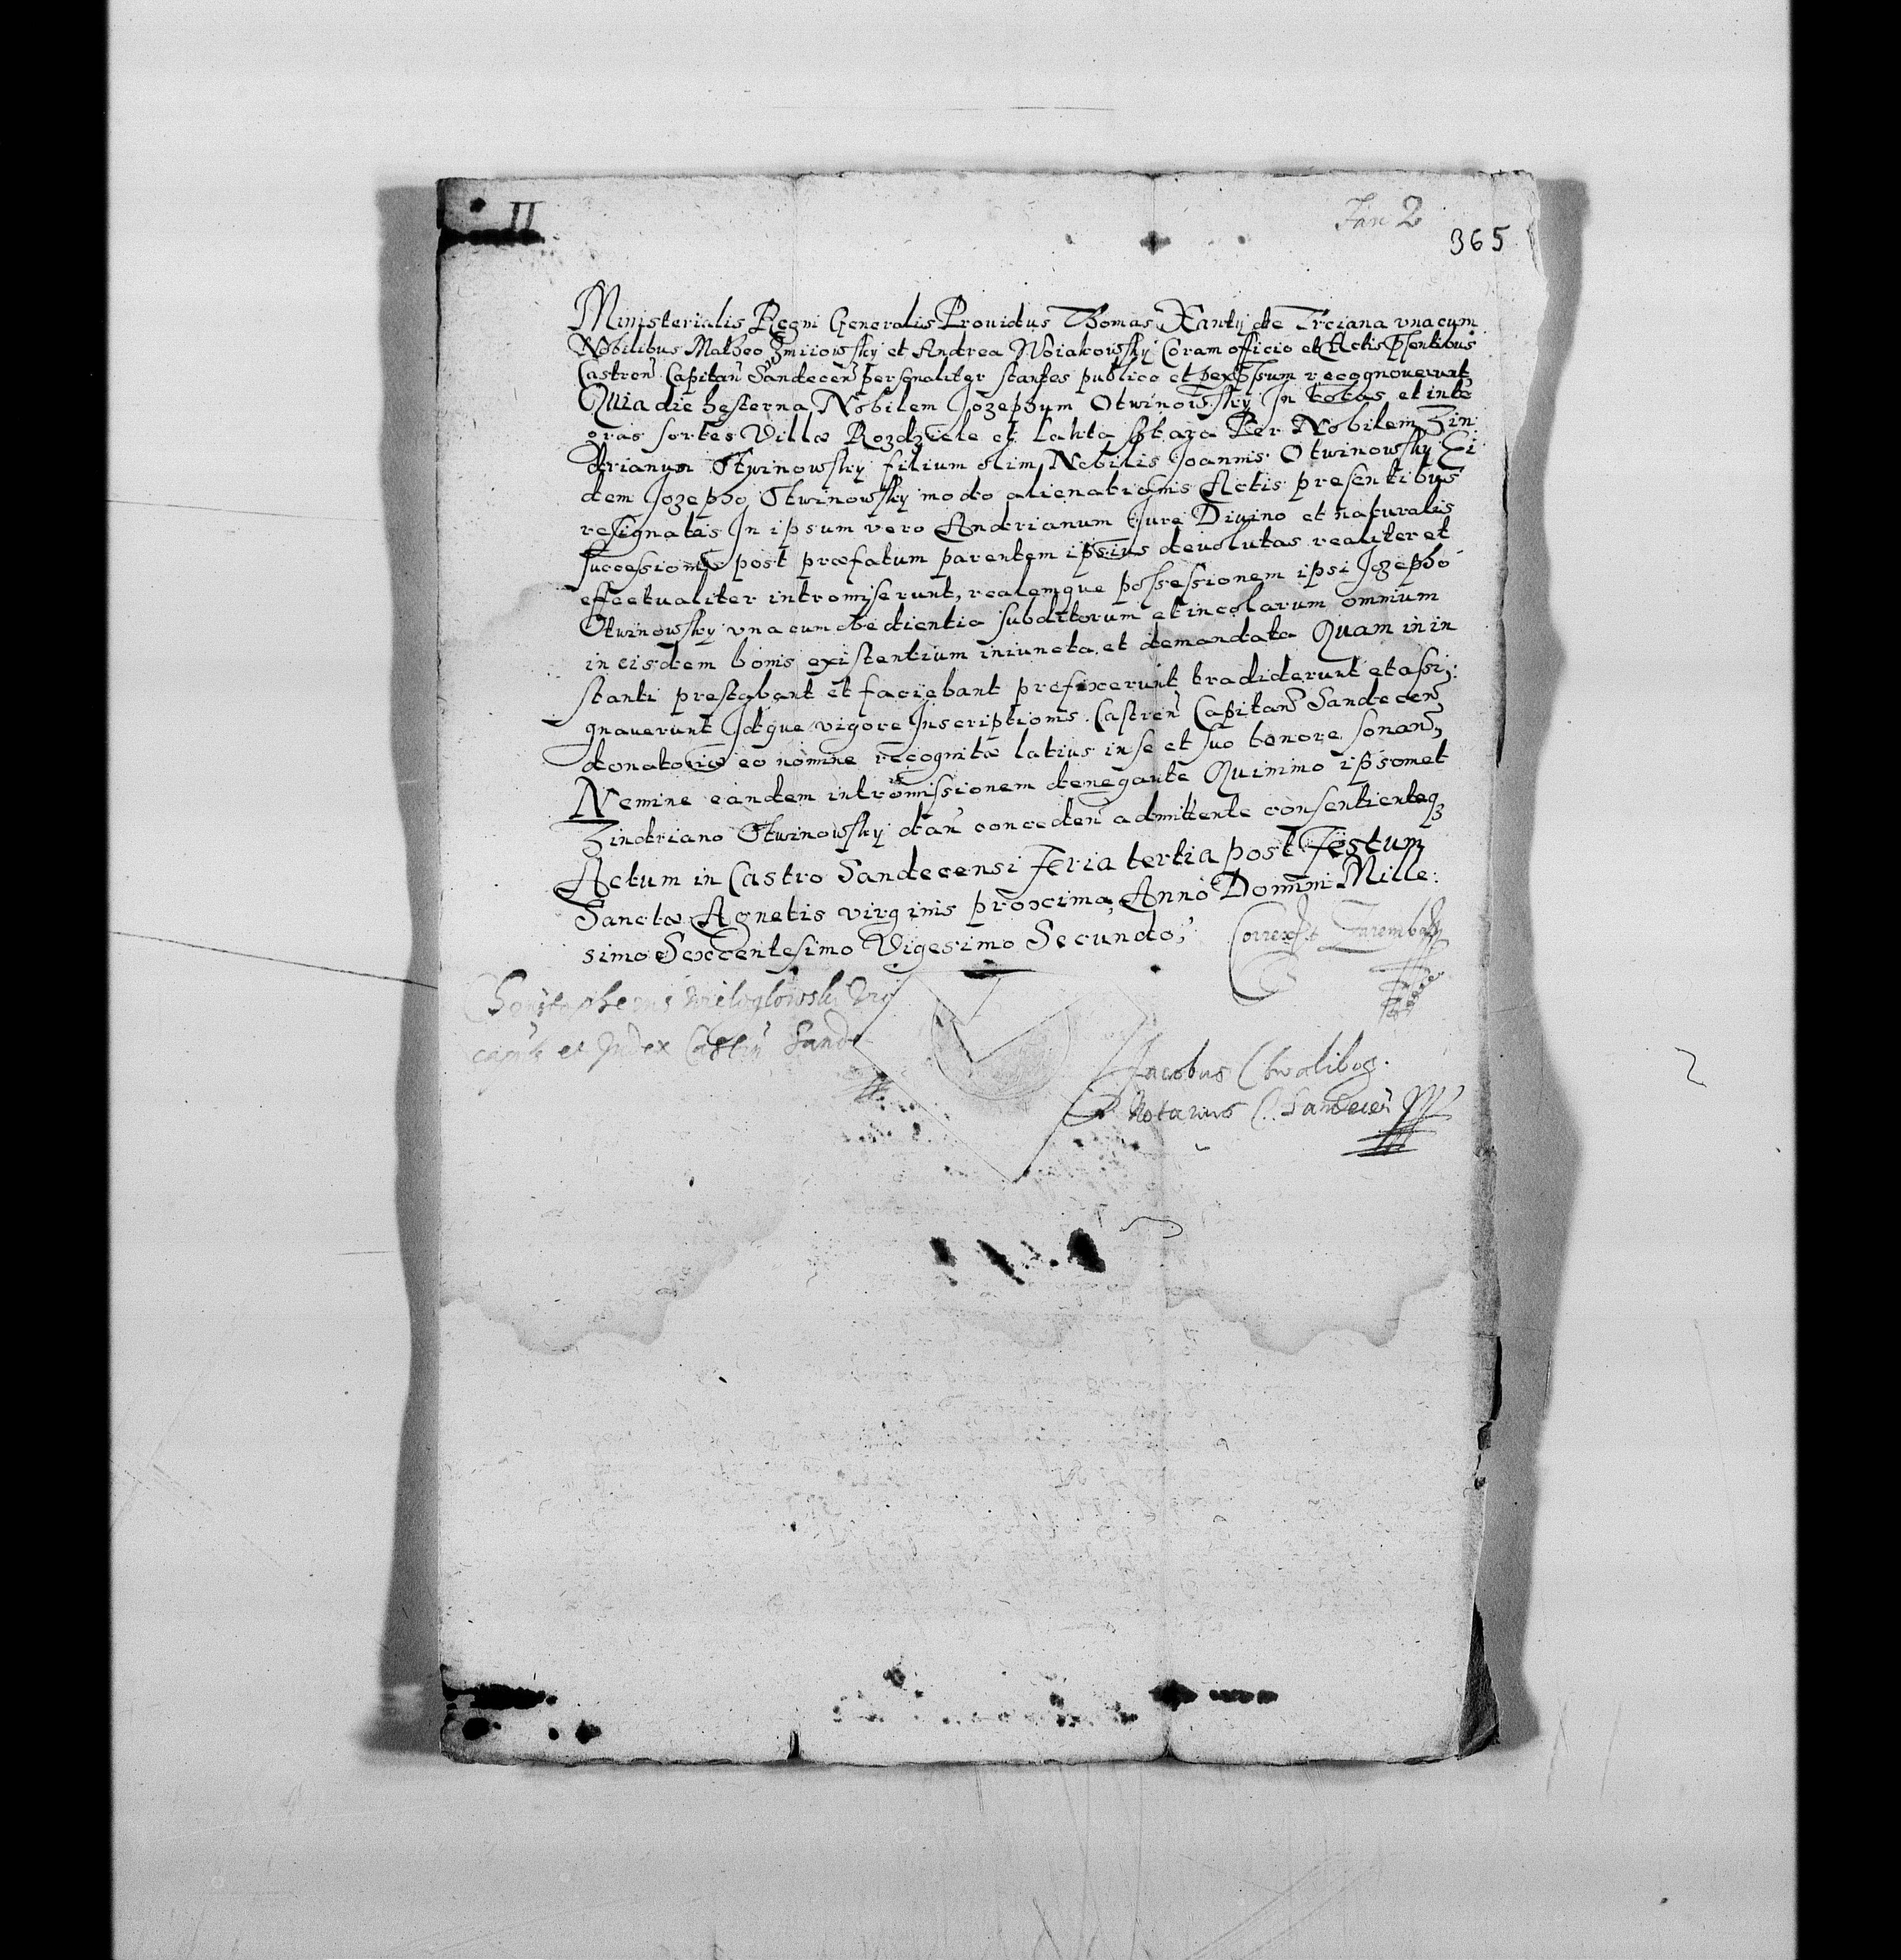 II
Jan 2
365
Ministerialis Regni Generalis Prouidus Thomas Xantij de Trciana vnacum
Nobilibus Matheo Zmiiowsky et Andrea Woiakowsky Coram officio et Actis p̄sentibus
Castren̄ Capitan̄ Sandecen̄ personaliter stantes publice et p exp̄ssum recognouerunt
Quia die hesterna Nobilem Jozephum Otwinowsky In totas et inte
gras sortes Villæ Rozdziele et Lakta Stara Per Nobilem Zin
drianum Otwinowsky filium olim Nobilis Joannis Otwinowsky Ei
dem Jozepho Otwinowsky modo alienationis Actis presentibus
resignatas In ipsum vero Andrianum Jure Diuino et naturalis
successionis post præfatum parentem ipsius deuolutas realiter et
effectualiter intromiserunt, realemque possessionem ipsi Jozepho
Otwinowsky vna cum obedientia subditorum et incolarum omnium
in eisdem bonis existentium iniuncta et demandata Quam in in
stanti prestabant et faciebant prefixerunt tradiderunt et assi:
gnauerunt Idque vigore Inscriptionis Castren̄ Capitan̄ Sandecen̄
donatoriæ eo nomine recognitæ latius in se et suo tenore sonan̄,
Nemine eandem intromissionem denegante Quinimo ipsomet
Zindriano Otwinowsky dan̄ conceden̄ admittente consentienteq3
Actum in Castro Sandecensi Feria tertia post Festum
Sanctæ Agnetis virginis proxima, Anno Domini Mille:
simo Sexcentesimo Vigesimo Secundo,
Correxit Zaremba
Christopherus Wielogłowski Vice
capits et Judex Castrn̄ Sande
Jacobus Chwalibog
Notarius C. Sandecen̄